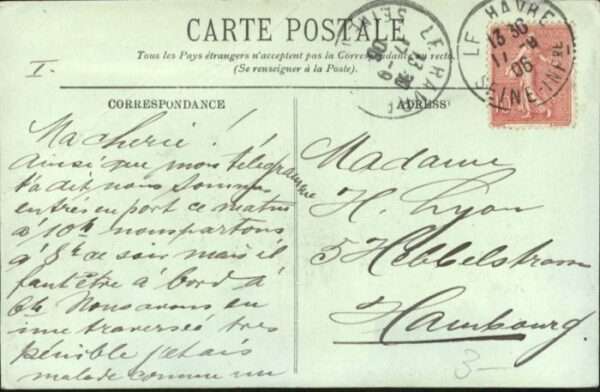 CARTE POSTALE
Tous les Pays étrangers n'acceptent pas la Correspondance au recto.
(Se renseigner à la Poste).
I.
LE HAVRE
13 30
11 - 8
06
SEINE-INFRE
LE HAVRE
13 30
SEINE
CORRESPONDANCE
ADRESSE
Ma cherie !
Ainsi que mon télégramme
t'a dit nous sommes
entrés en port ce matin
à 10h nous partons
à 8h ce soir mais il
faut être à bord à
6h Nous avons eu
une traversée tres
penible j'etais
malade comme un
Madame
H. Lyon
5 Hebbelstrasse
Hambourg.
3-